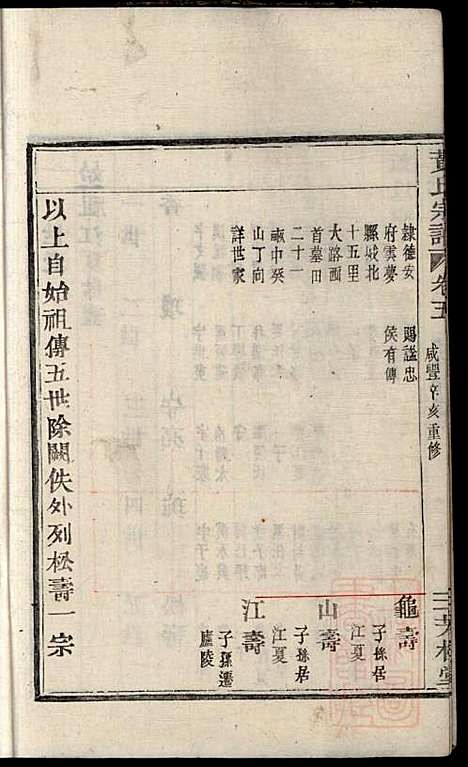 黄氏宗譜 卷五 咸豐辛亥重修 三大樹堂
隸德安 賜諡忠
府雲夢 侯有傳
縣城北
十五里
大路西
首墓田
二十一
畝中癸
山丁向
詳世家
龜壽 子孫居江夏
山壽 子孫居江夏
江壽 子孫遷廬陵
以上自始祖傳五世除闕佚外列松壽一宗